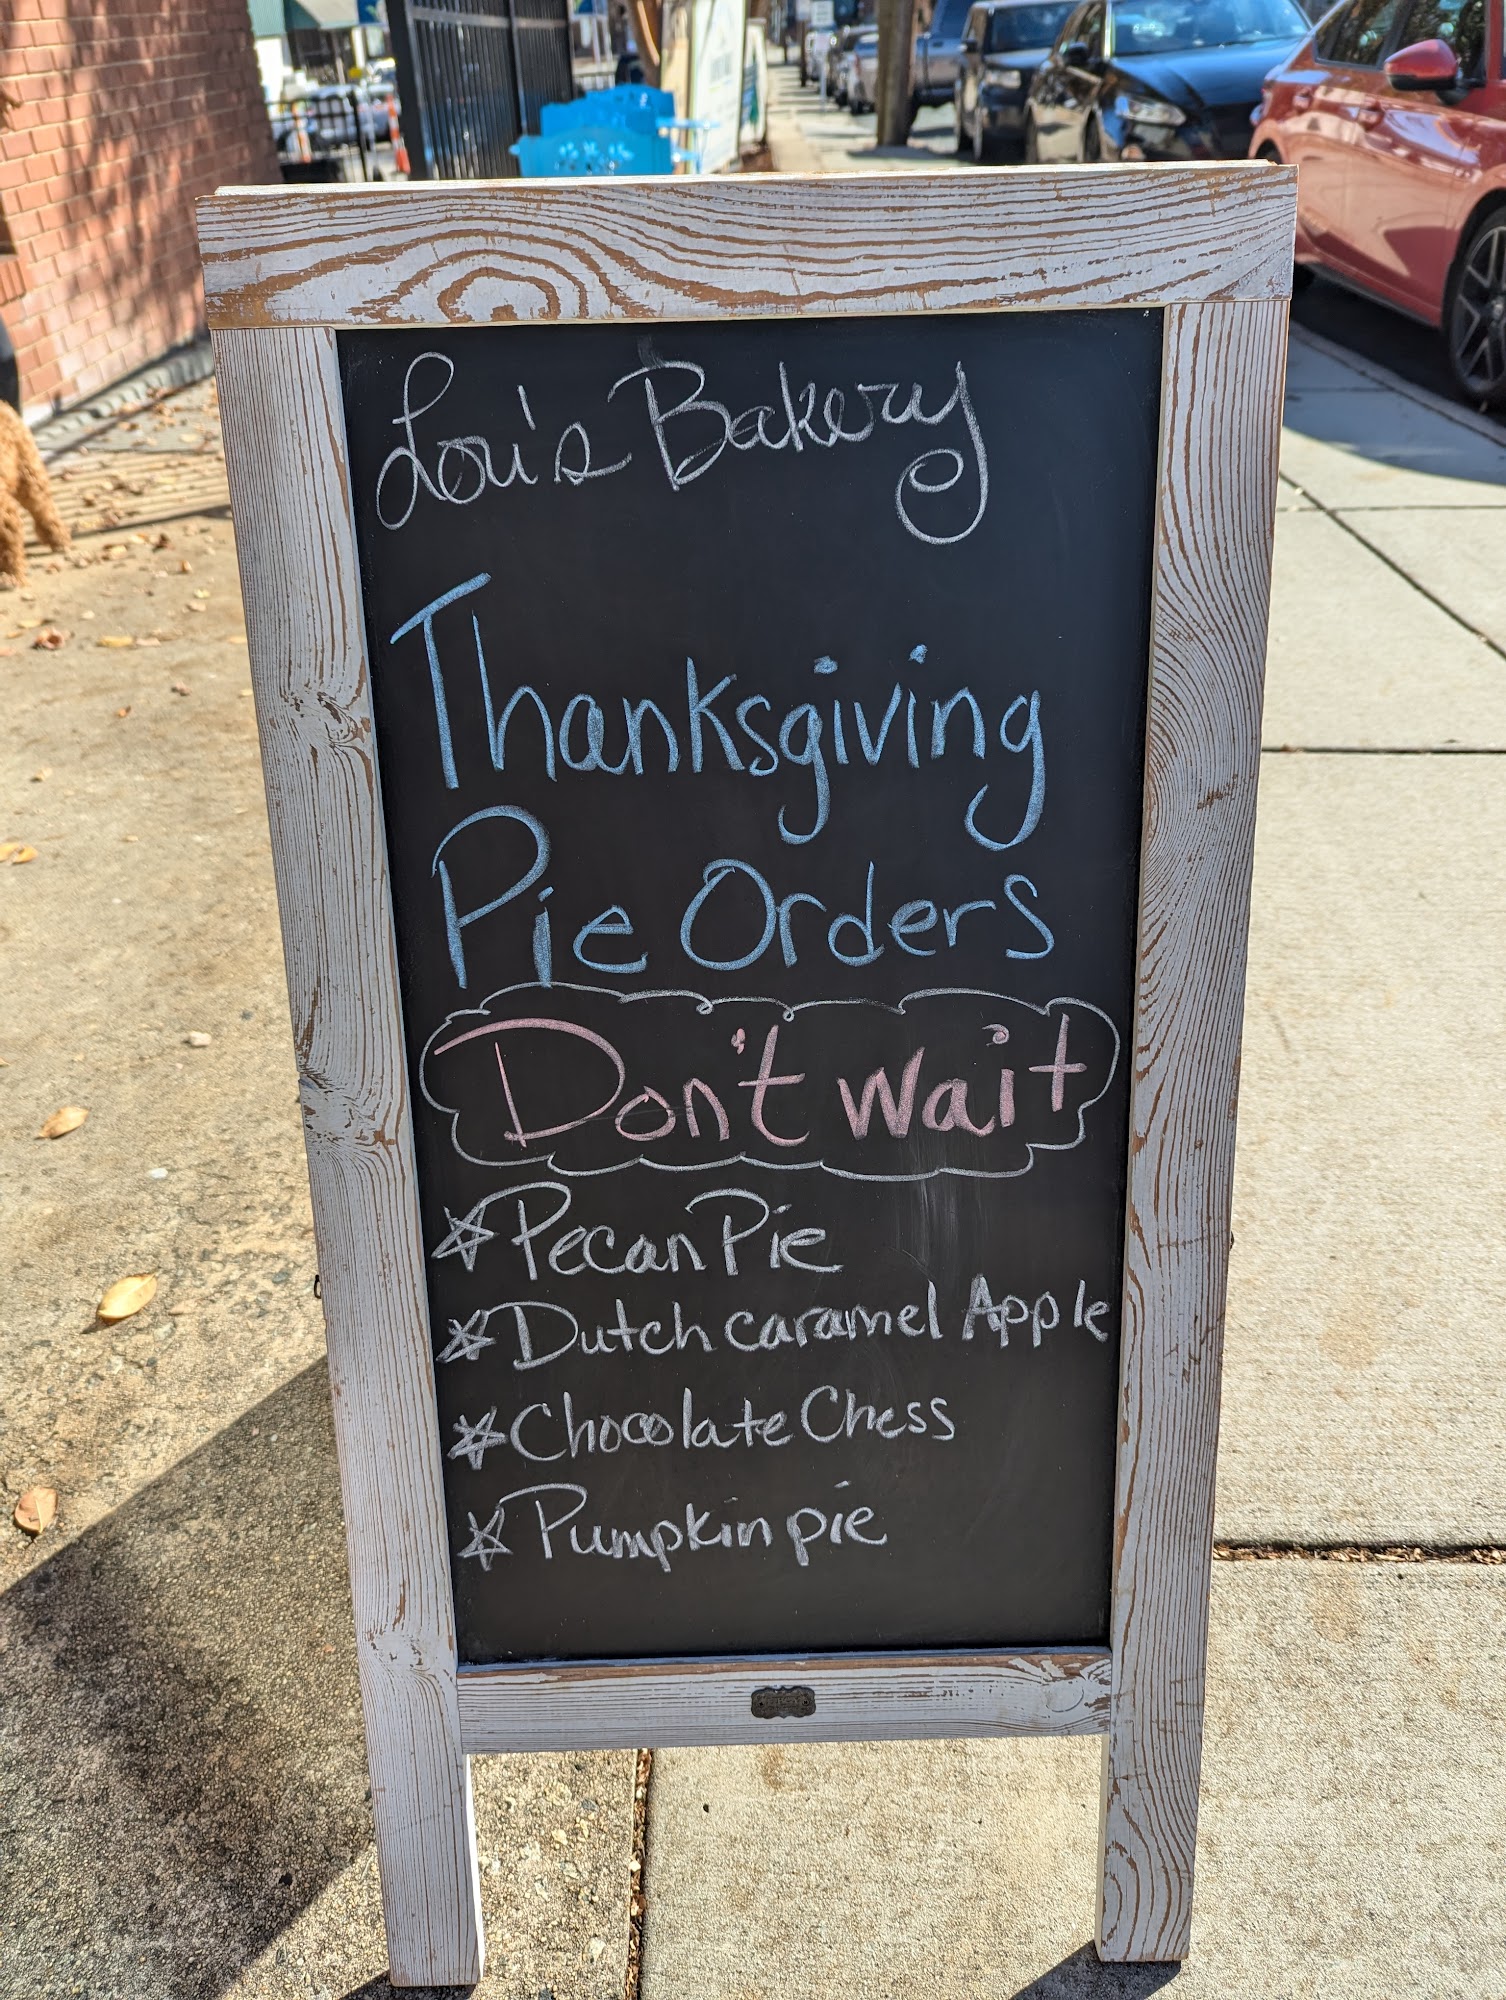 Lori's Bakery
Thanksgiving
Pie Orders
Don't wait
Pecan Pie
Dutch caramel Apple
Chocolate Chess
Pumpkin pie